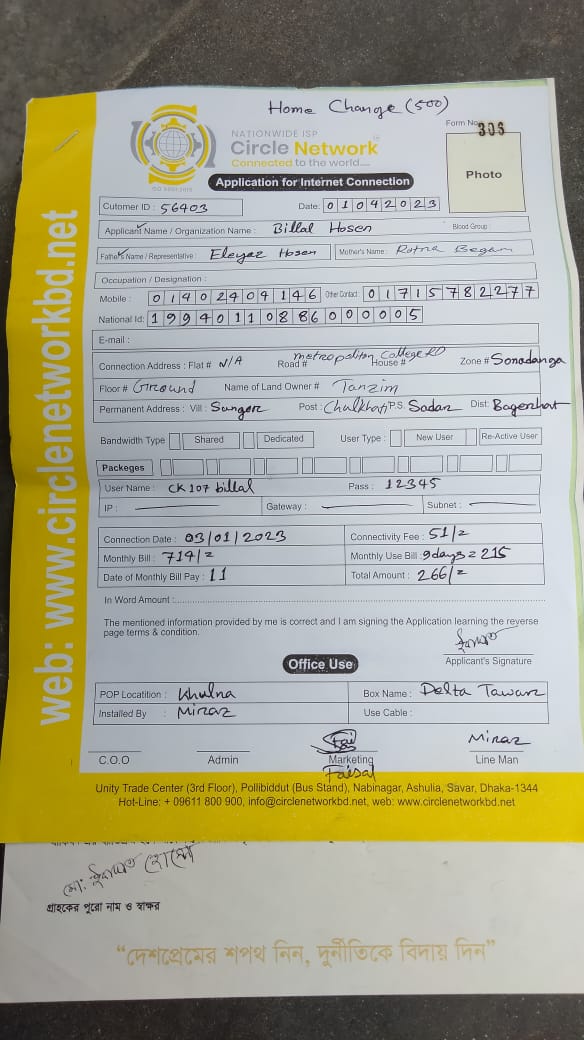 Home Change (500)
Form No. 306
NATIONWIDE ISP
Circle Network
Connected to the world....
ISO 9001:2015
Photo
Application for Internet Connection
Cutomer ID : 56403 Date: 01042023
Applicant Name / Organization Name : Billal Hosen Blood Group :
Father's Name / Representative : Eleyaz Hosen Mother's Name : Ratna Begam
Occupation / Designation :
Mobile : 01402404146 Other Contact: 01715782277
National Id: 19940110886000005
E-mail :
Connection Address : Flat # N/A Road # metropoliton College RD House # Zone # Sonadanga
Floor # Ground Name of Land Owner # Tanzim
Permanent Address : Vill : Sungor Post : Chulkhati P.S. Sadar Dist: Bagerhat
Bandwidth Type Shared Dedicated User Type : New User Re-Active User
Packeges
User Name : CK107 billal Pass : 12345
IP : Gateway : Subnet :
Connection Date : 03/01/2023 Connectivity Fee : 51/=
Monthly Bill : 714/= Monthly Use Bill : 9days = 215
Date of Monthly Bill Pay : 11 Total Amount : 266/=
In Word Amount :
The mentioned information provided by me is correct and I am signing the Application learning the reverse
page terms & condition.
Applicant's Signature
Office Use
POP Locatition : Khulna Box Name : Delta Tawar
Installed By : Miraz Use Cable :
Miraz
C.O.O Admin Marketing Line Man
Faisal
Unity Trade Center (3rd Floor), Pollibiddut (Bus Stand), Nabinagar, Ashulia, Savar, Dhaka-1344
Hot-Line: + 09611 800 900, info@circlenetworkbd.net, web: www.circlenetworkbd.net
web: www.circlenetworkbd.net
গ্রাহকের পুরো নাম ও স্বাক্ষর
“দেশপ্রেমের শপথ নিন, দুর্নীতিকে বিদায় দিন”